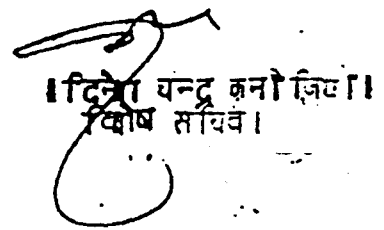 ।दिनेश चन्द्र कनौजिया।
विशेष सचिव।